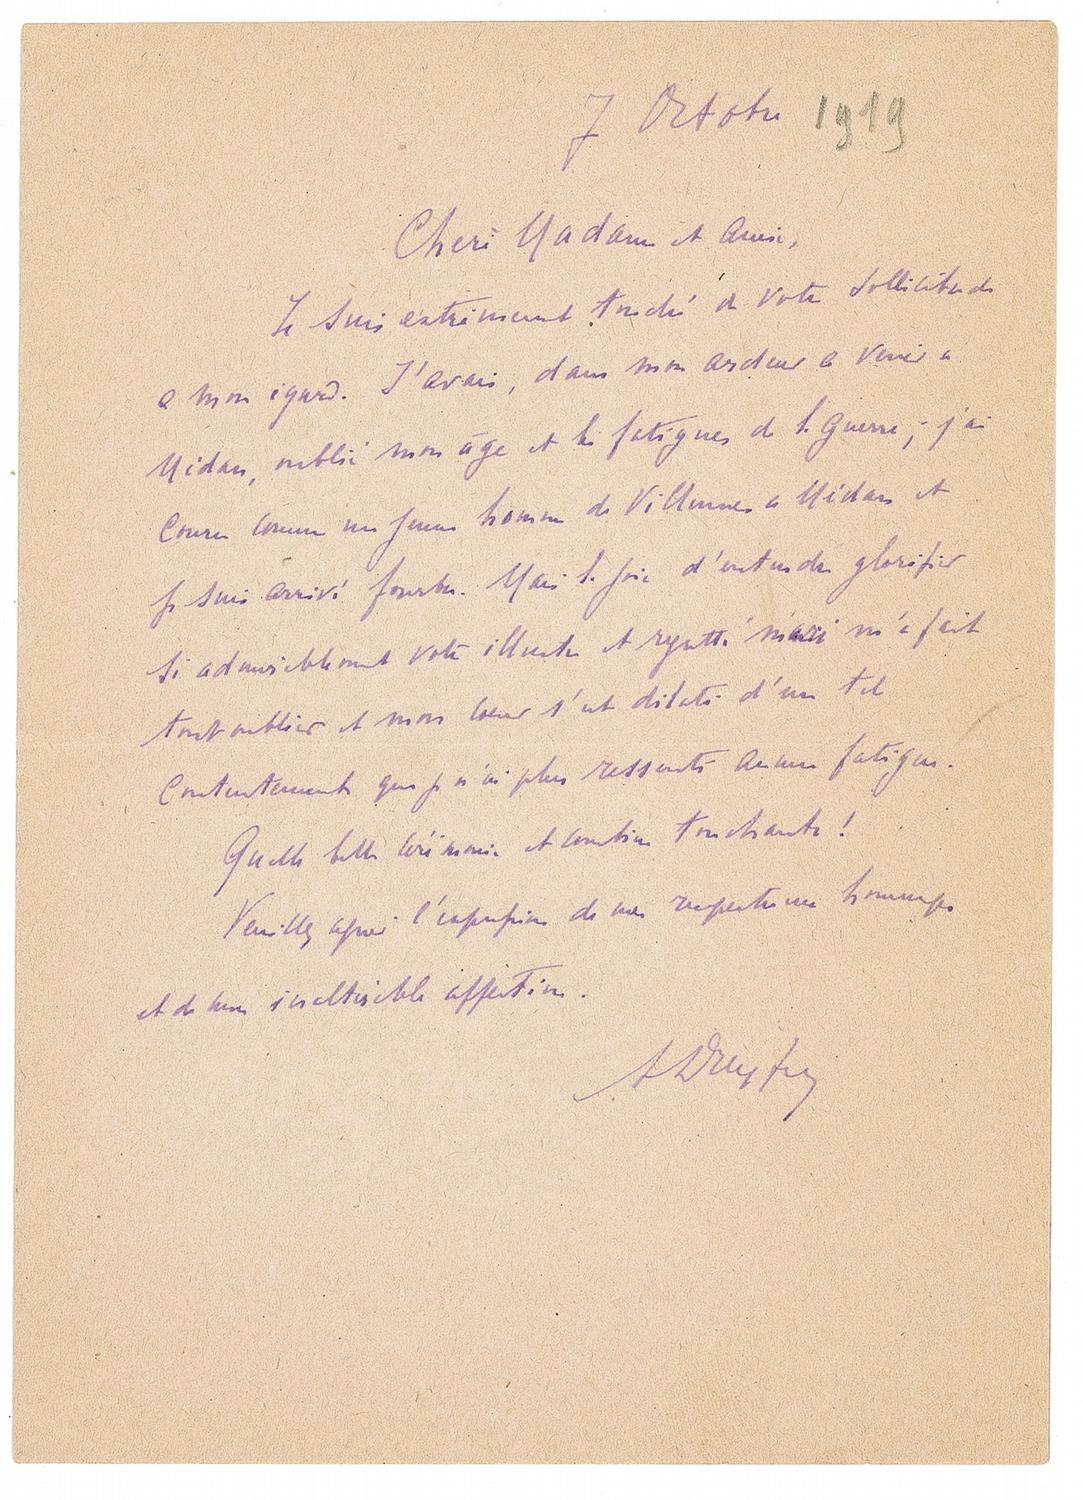 7 Octobre 1919
Chère Madame et Amie,
Je suis extrêmement touché de votre sollicitude
à mon égard. J'avais, dans mon ardeur à venir à
Médan, oublié mon âge et les fatigues de la guerre; j'ai
couru comme un jeune homme de Villennes à Médan et
je suis arrivé fourbu. Mais la joie d'entendre glorifier
si admirablement votre illustre et regretté mari m'a fait
tout oublier et mon cœur s'est dilaté d'un tel
contentement que je n'ai plus ressenti aucune fatigue.
Quelle belle cérémonie et combien touchante !
Veuillez agréer l'expression de mes respectueux hommages
et de mon inaltérable affection.
A Dreyfus